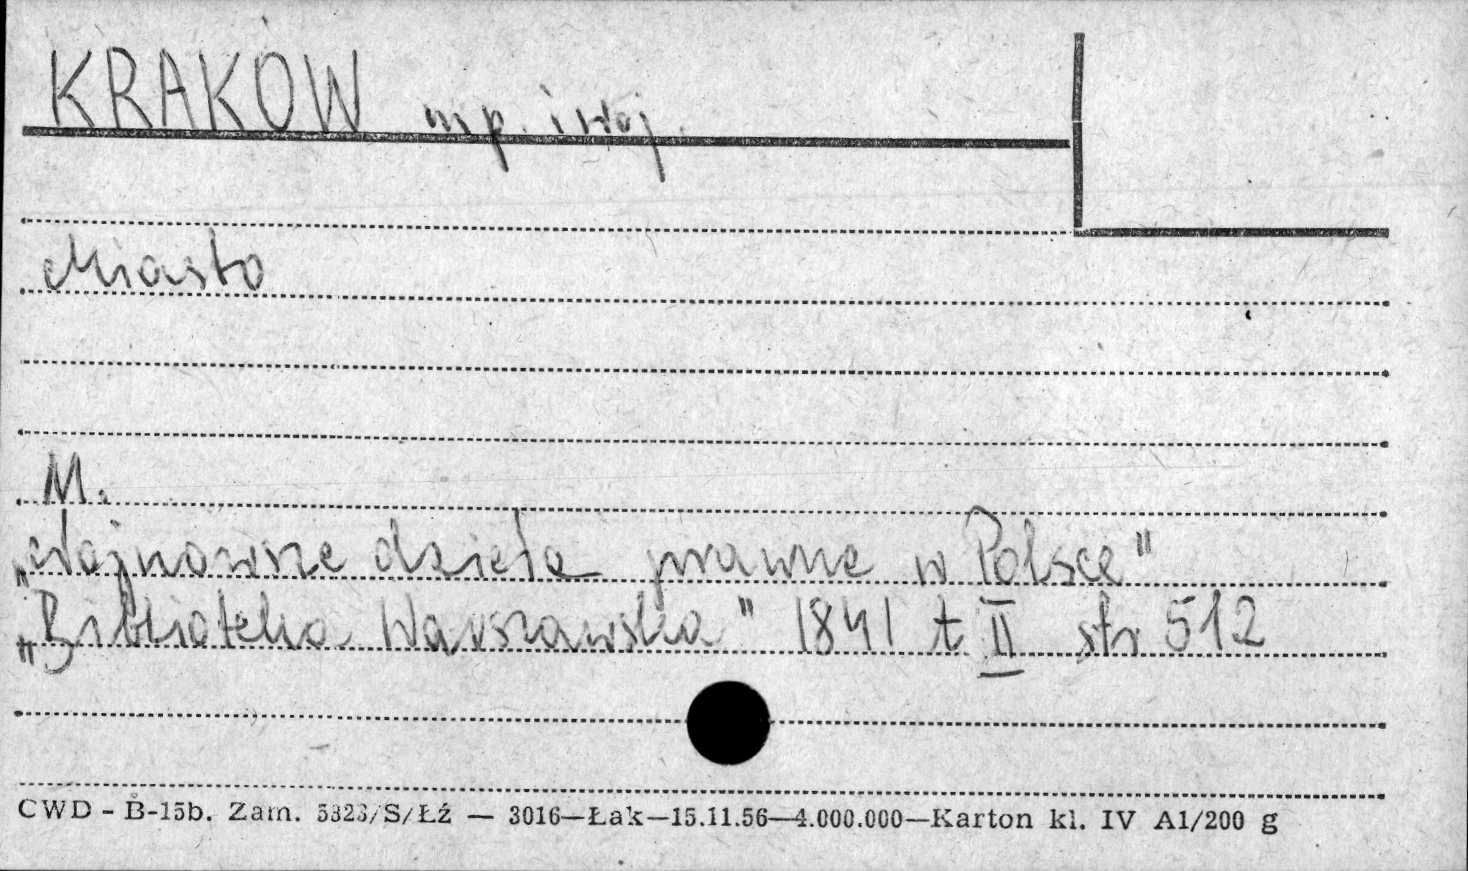 KRAKÓW mp. i woj.
Miasto
M.
„Najnowsze dzieła prawne w Polsce"
„Biblioteka Warszawska" 1841 t II str 512
CWD - B-15b. Zam. 5323/S/Łź — 3016—Łak—15.11.56—4.000.000—Karton kl. IV A1/200 g